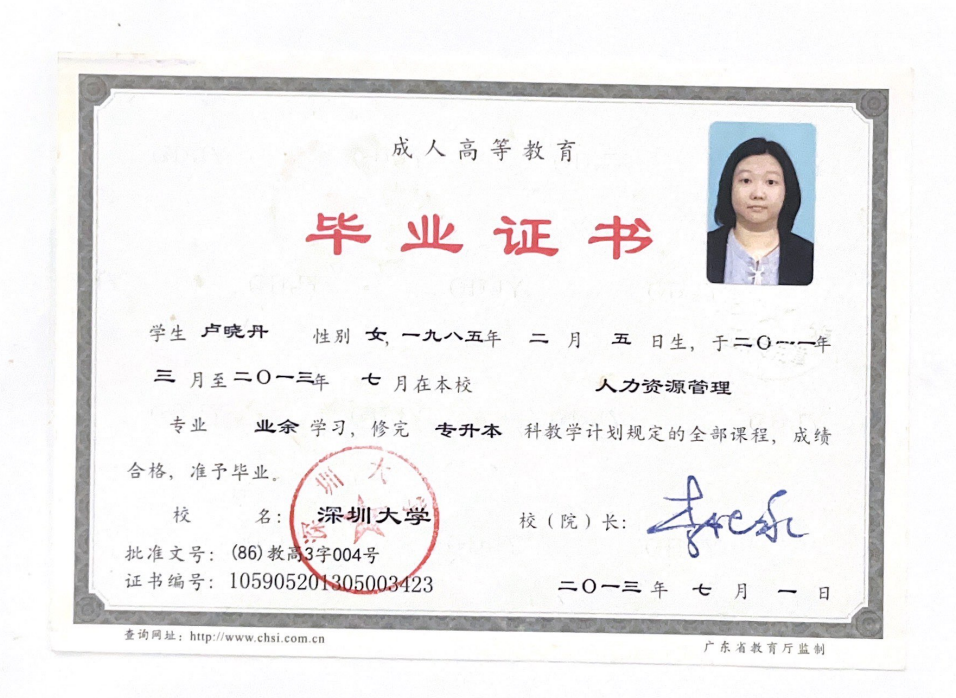 成人高等教育
毕业证书
学生 卢晓丹 性别 女,一九八五年 二 月 五 日生,于二〇一一年
三 月至二〇一三年 七 月在本校 人力资源管理
专业 业余 学习,修完 专升本 科教学计划规定的全部课程,成绩
合格,准予毕业。
校 名: 深圳大学 校(院)长:
深圳大学
批准文号: (86)教高3字004号
证书编号: 105905201305003423
二〇一三 年 七 月 一 日
查询网址:http://www.chsi.com.cn
广东省教育厅监制